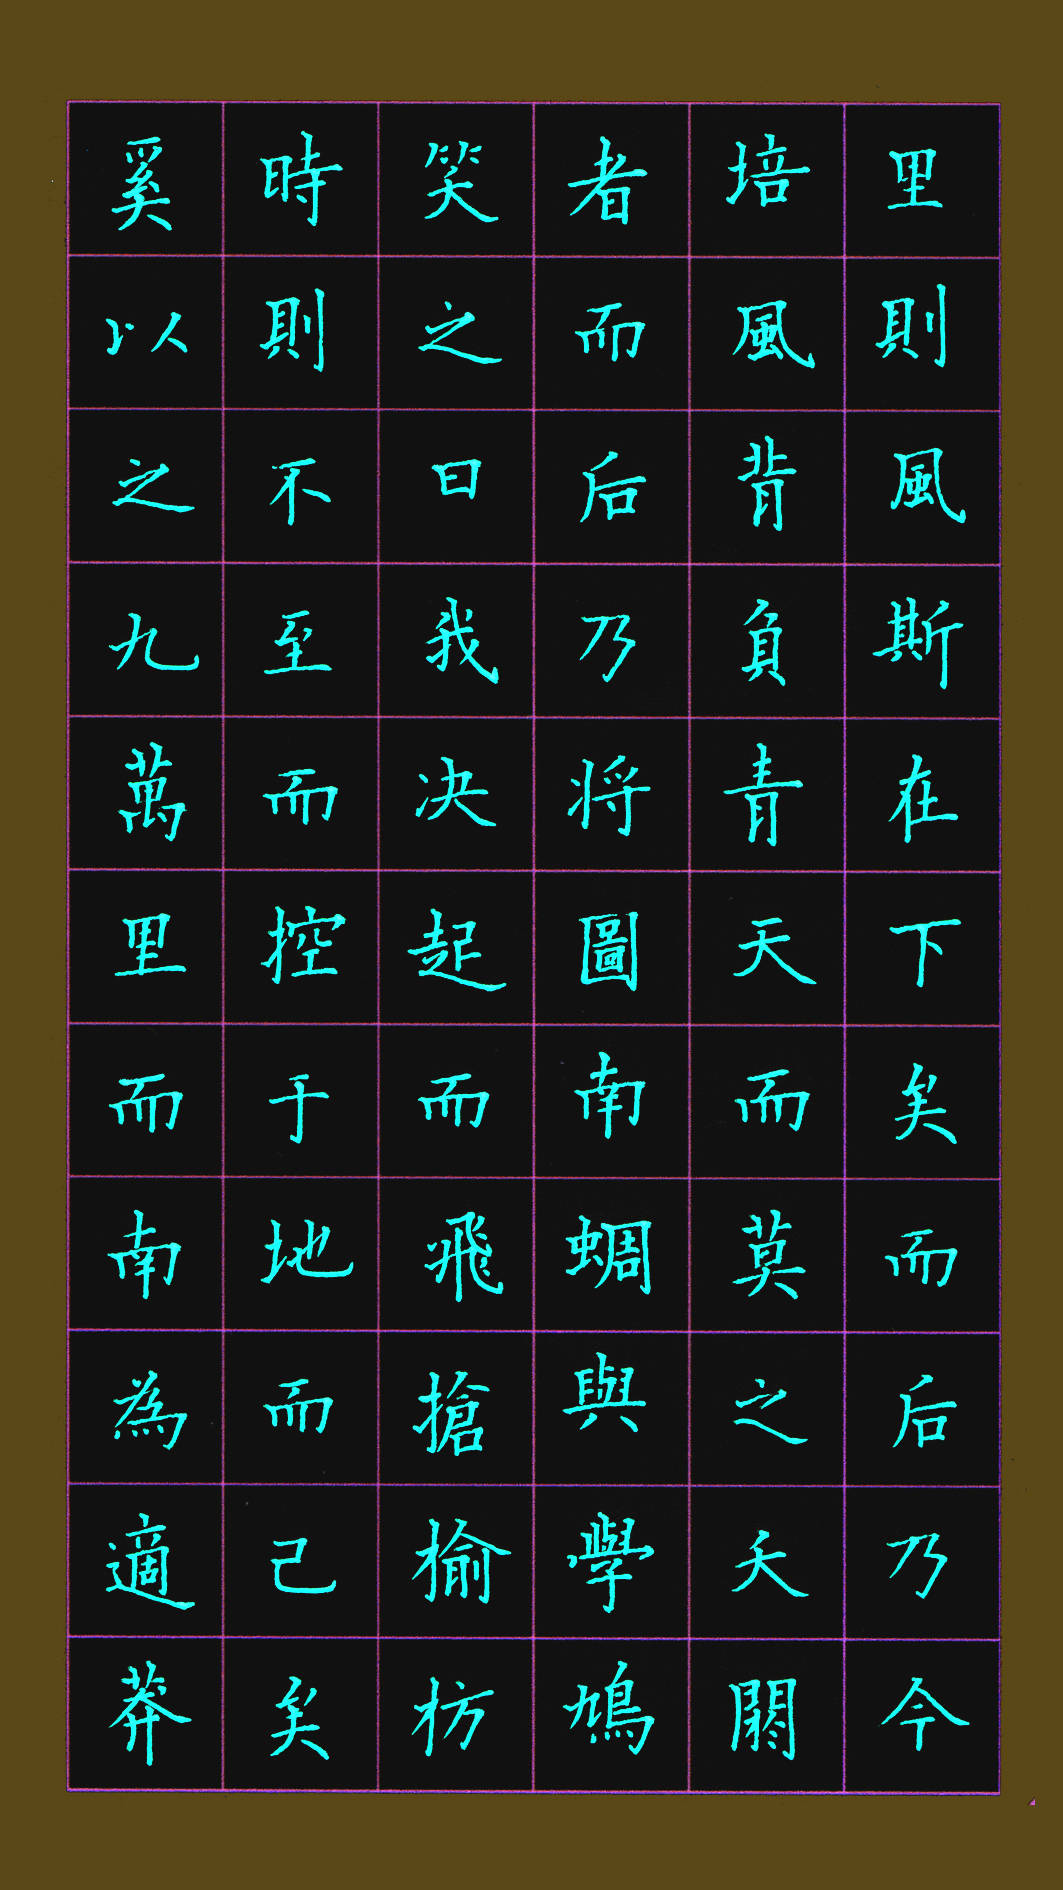 里則風斯在下矣而后乃今
培風背負青天而莫之夭閼
者而后乃将圖南蜩與學鳩
笑之曰我决起而飛搶榆枋
時則不至而控于地而己矣
奚以之九萬里而南為適莽